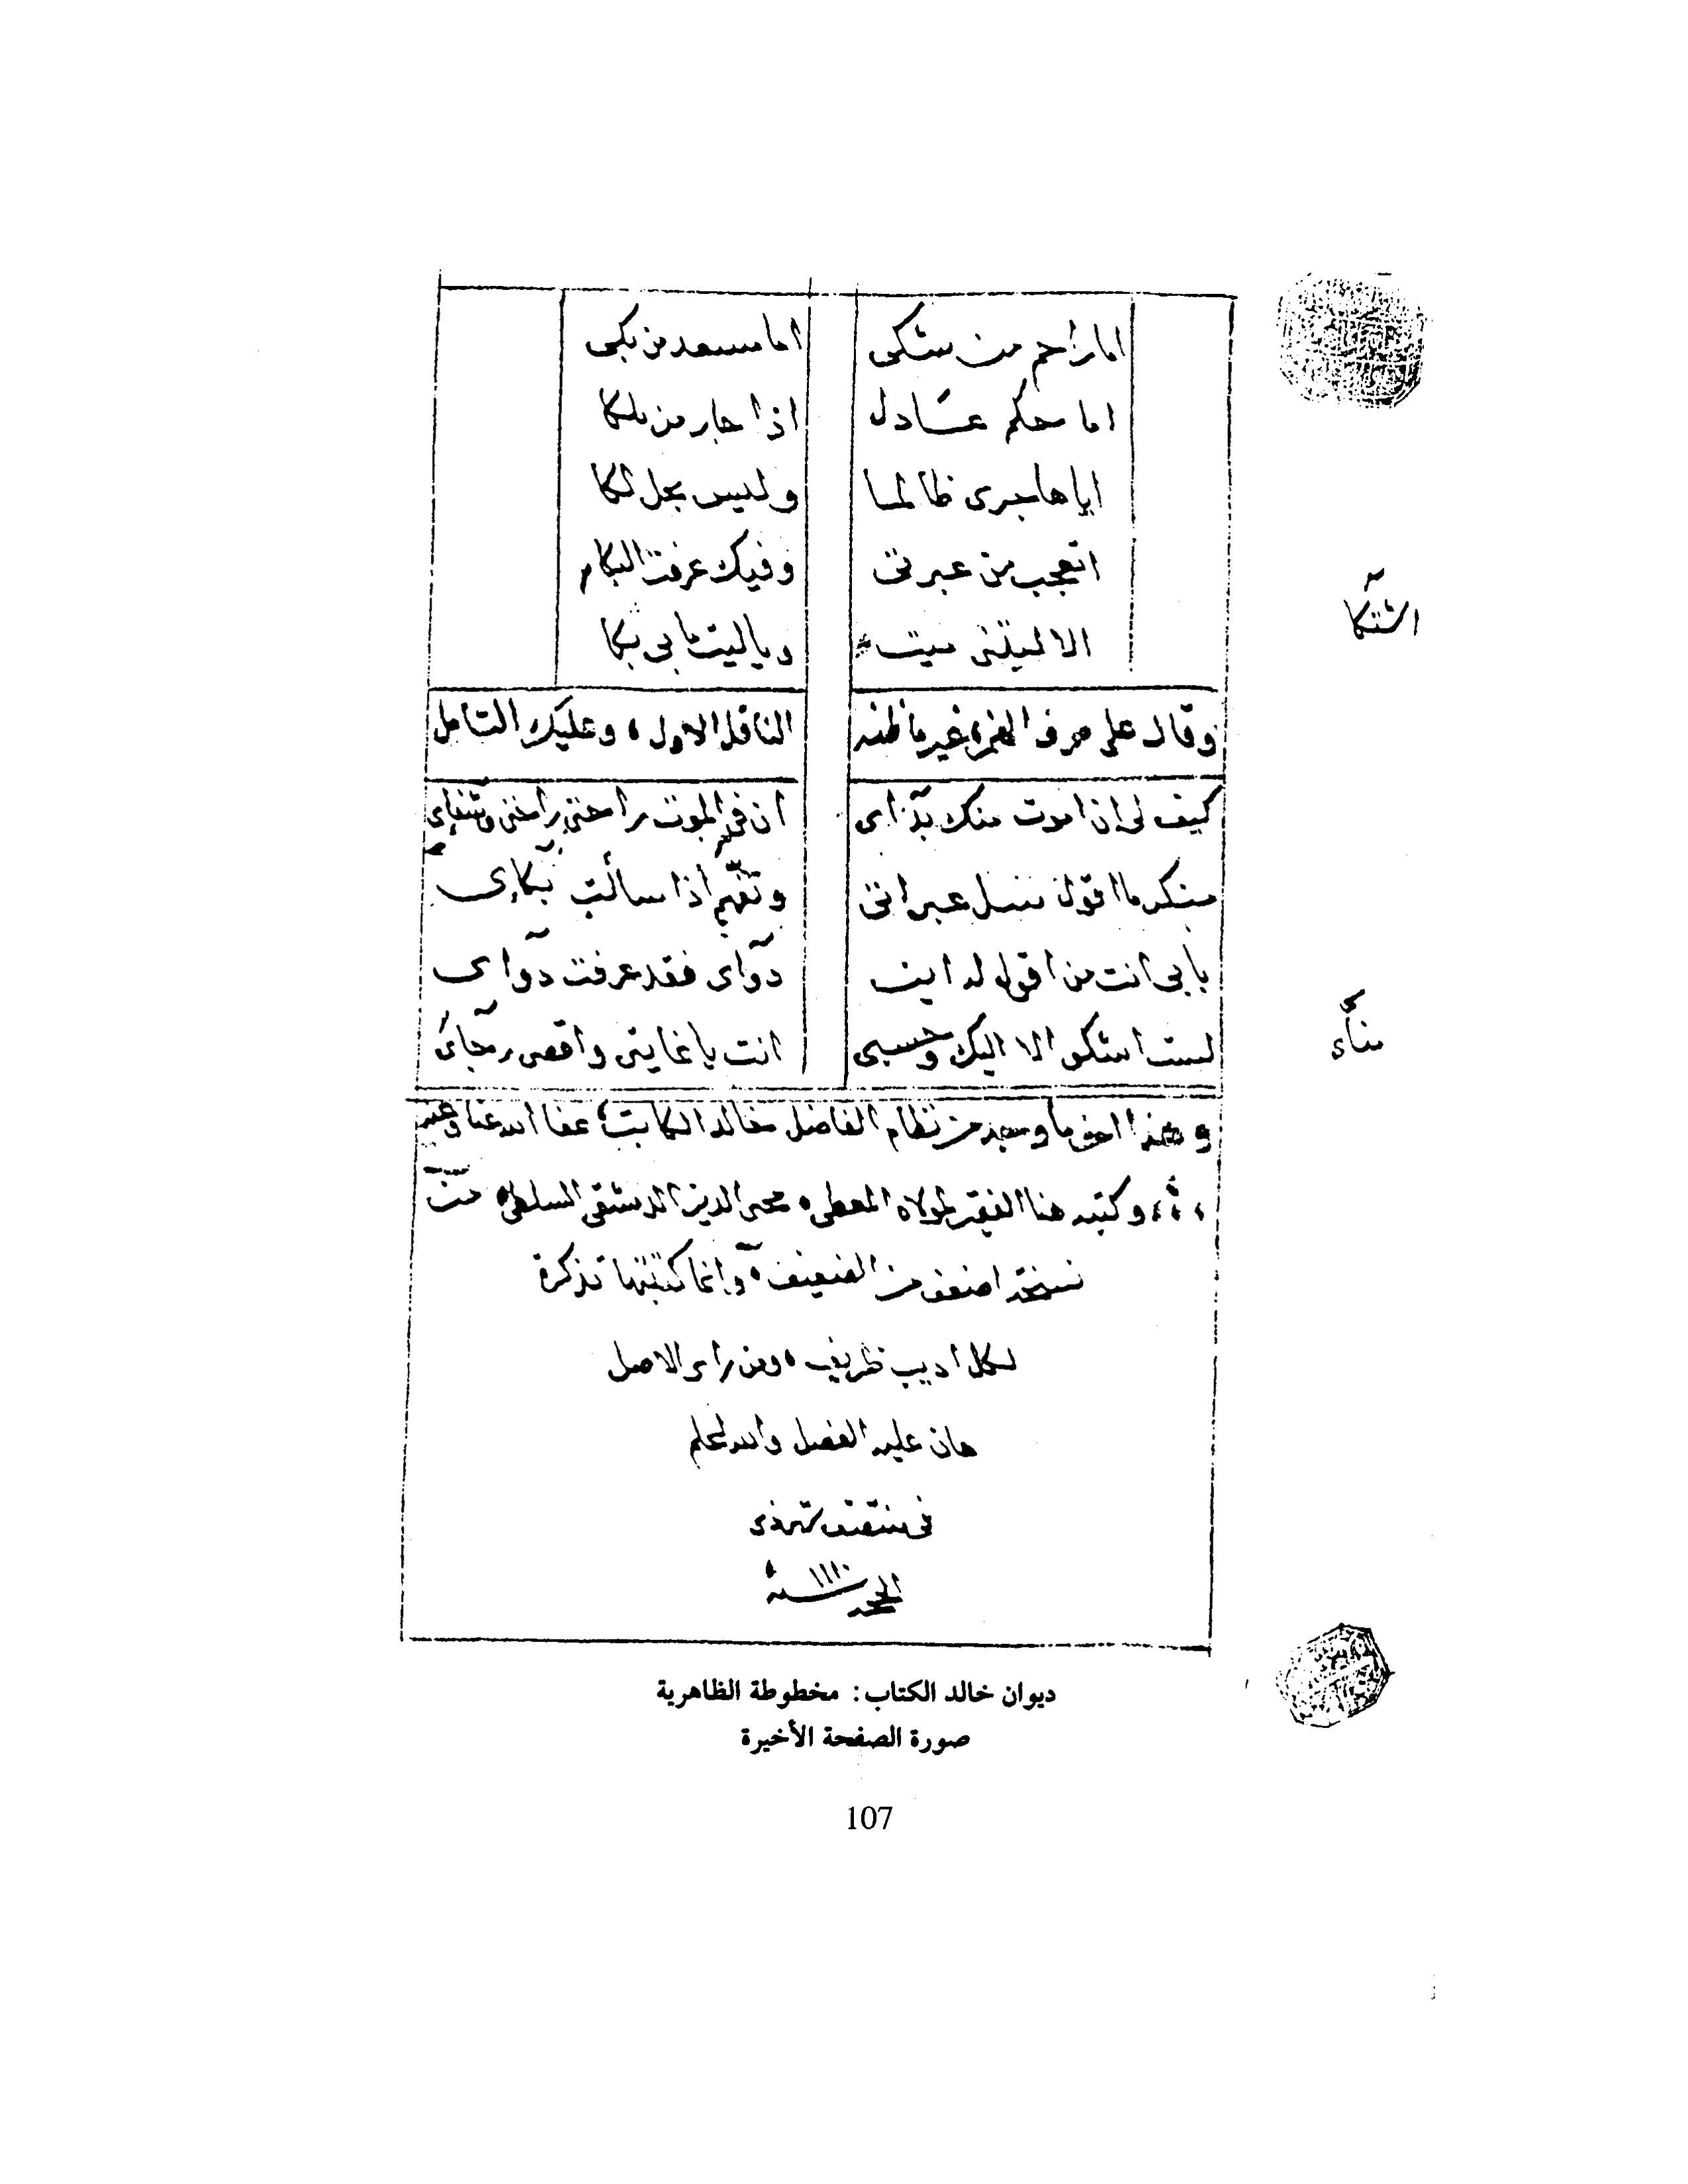 اما راحم من شكى اما مسعد من بكى
اما محكم عادل اذا جار من ملكا
ايا هاجرى ظالما وليس يحل لكا
اتعجب من عبرتى وفيك عرفت البكا
الا ليتنى ميت ويا ليت ما بى بكا
اشتكا
وقال على حرف الهمزة غير ما ظنه الناقل الاول وعليك التامل
كيف لى ان اموت منك بدآاى ان فى الموت راحتى وشفاى
منكر ما اقول سل عبراتى وتفهم اذا سالت بكاى
بابى انت من اقول له اين دوآاى فقد عرفت دوآاى
لست اشكو الا اليك وحسبى انت يا غايتى واقصى رجاى
مناء
وهذا اخر ما وجد من نظام الفاضل خالد الكاتب عفا الله عنا وعنه
وكتبه هنا الفقير لمولاه المعطى محى الدين الدمشقى السلطى من
نسخة اضعف من الضعيف وانما كتبتها تذكرة
لكل اديب ظريف ومن راى الاصل
هان عليه الفصل والله اعلم
فى منتصف
سنة ١١١٠
ديوان خالد الكتاب: مخطوطة الظاهرية
صورة الصفحة الأخيرة
107